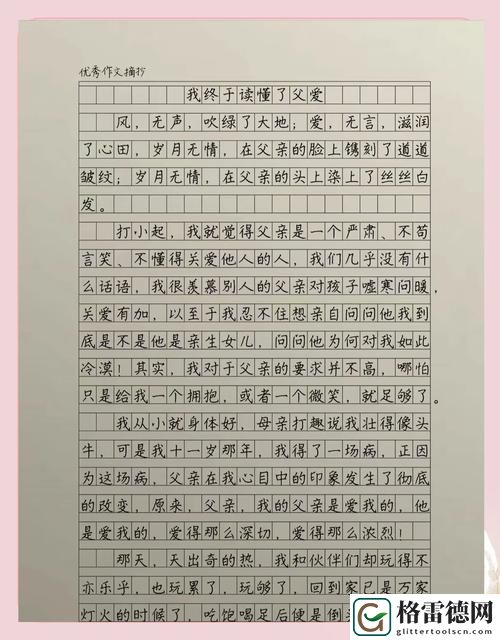 优秀作文摘抄
我终于读懂了父爱
风，无声，吹绿了大地；爱，无言，滋润
了心田，岁月无情，在父亲的脸上镌刻了道道
皱纹；岁月无情，在父亲的头上染上了丝丝白
发。
打小起，我就觉得父亲是一个严肃、不苟
言笑、不懂得关爱他人的人，我们几乎没有什
么话语，我很羡慕别人的父亲对孩子嘘寒问暖，
关爱有加，以至于我忍不住想亲自问问他我到
底是不是他是亲生女儿，问问他为何对我如此
冷漠！其实，我对于父亲的要求并不高，哪怕
只是给我一个拥抱，或者一个微笑，就足够了。
我从小就身体好，母亲打趣说我壮得像头
牛，可是我十一岁那年，我得了一场病，正因
为这场病，父亲在我心目中的印象发生了彻底
的改变，原来，父亲，我的父亲是爱我的，他
是爱我的，爱得那么深切，爱得那么浓烈！
那天，天出奇的热，我和伙伴们却玩得不
亦乐乎，也玩累了，玩够了，回到家已是万家
灯火的时候了，吃饱喝足后便是倒头
格雷德网
glittertoolscn.com